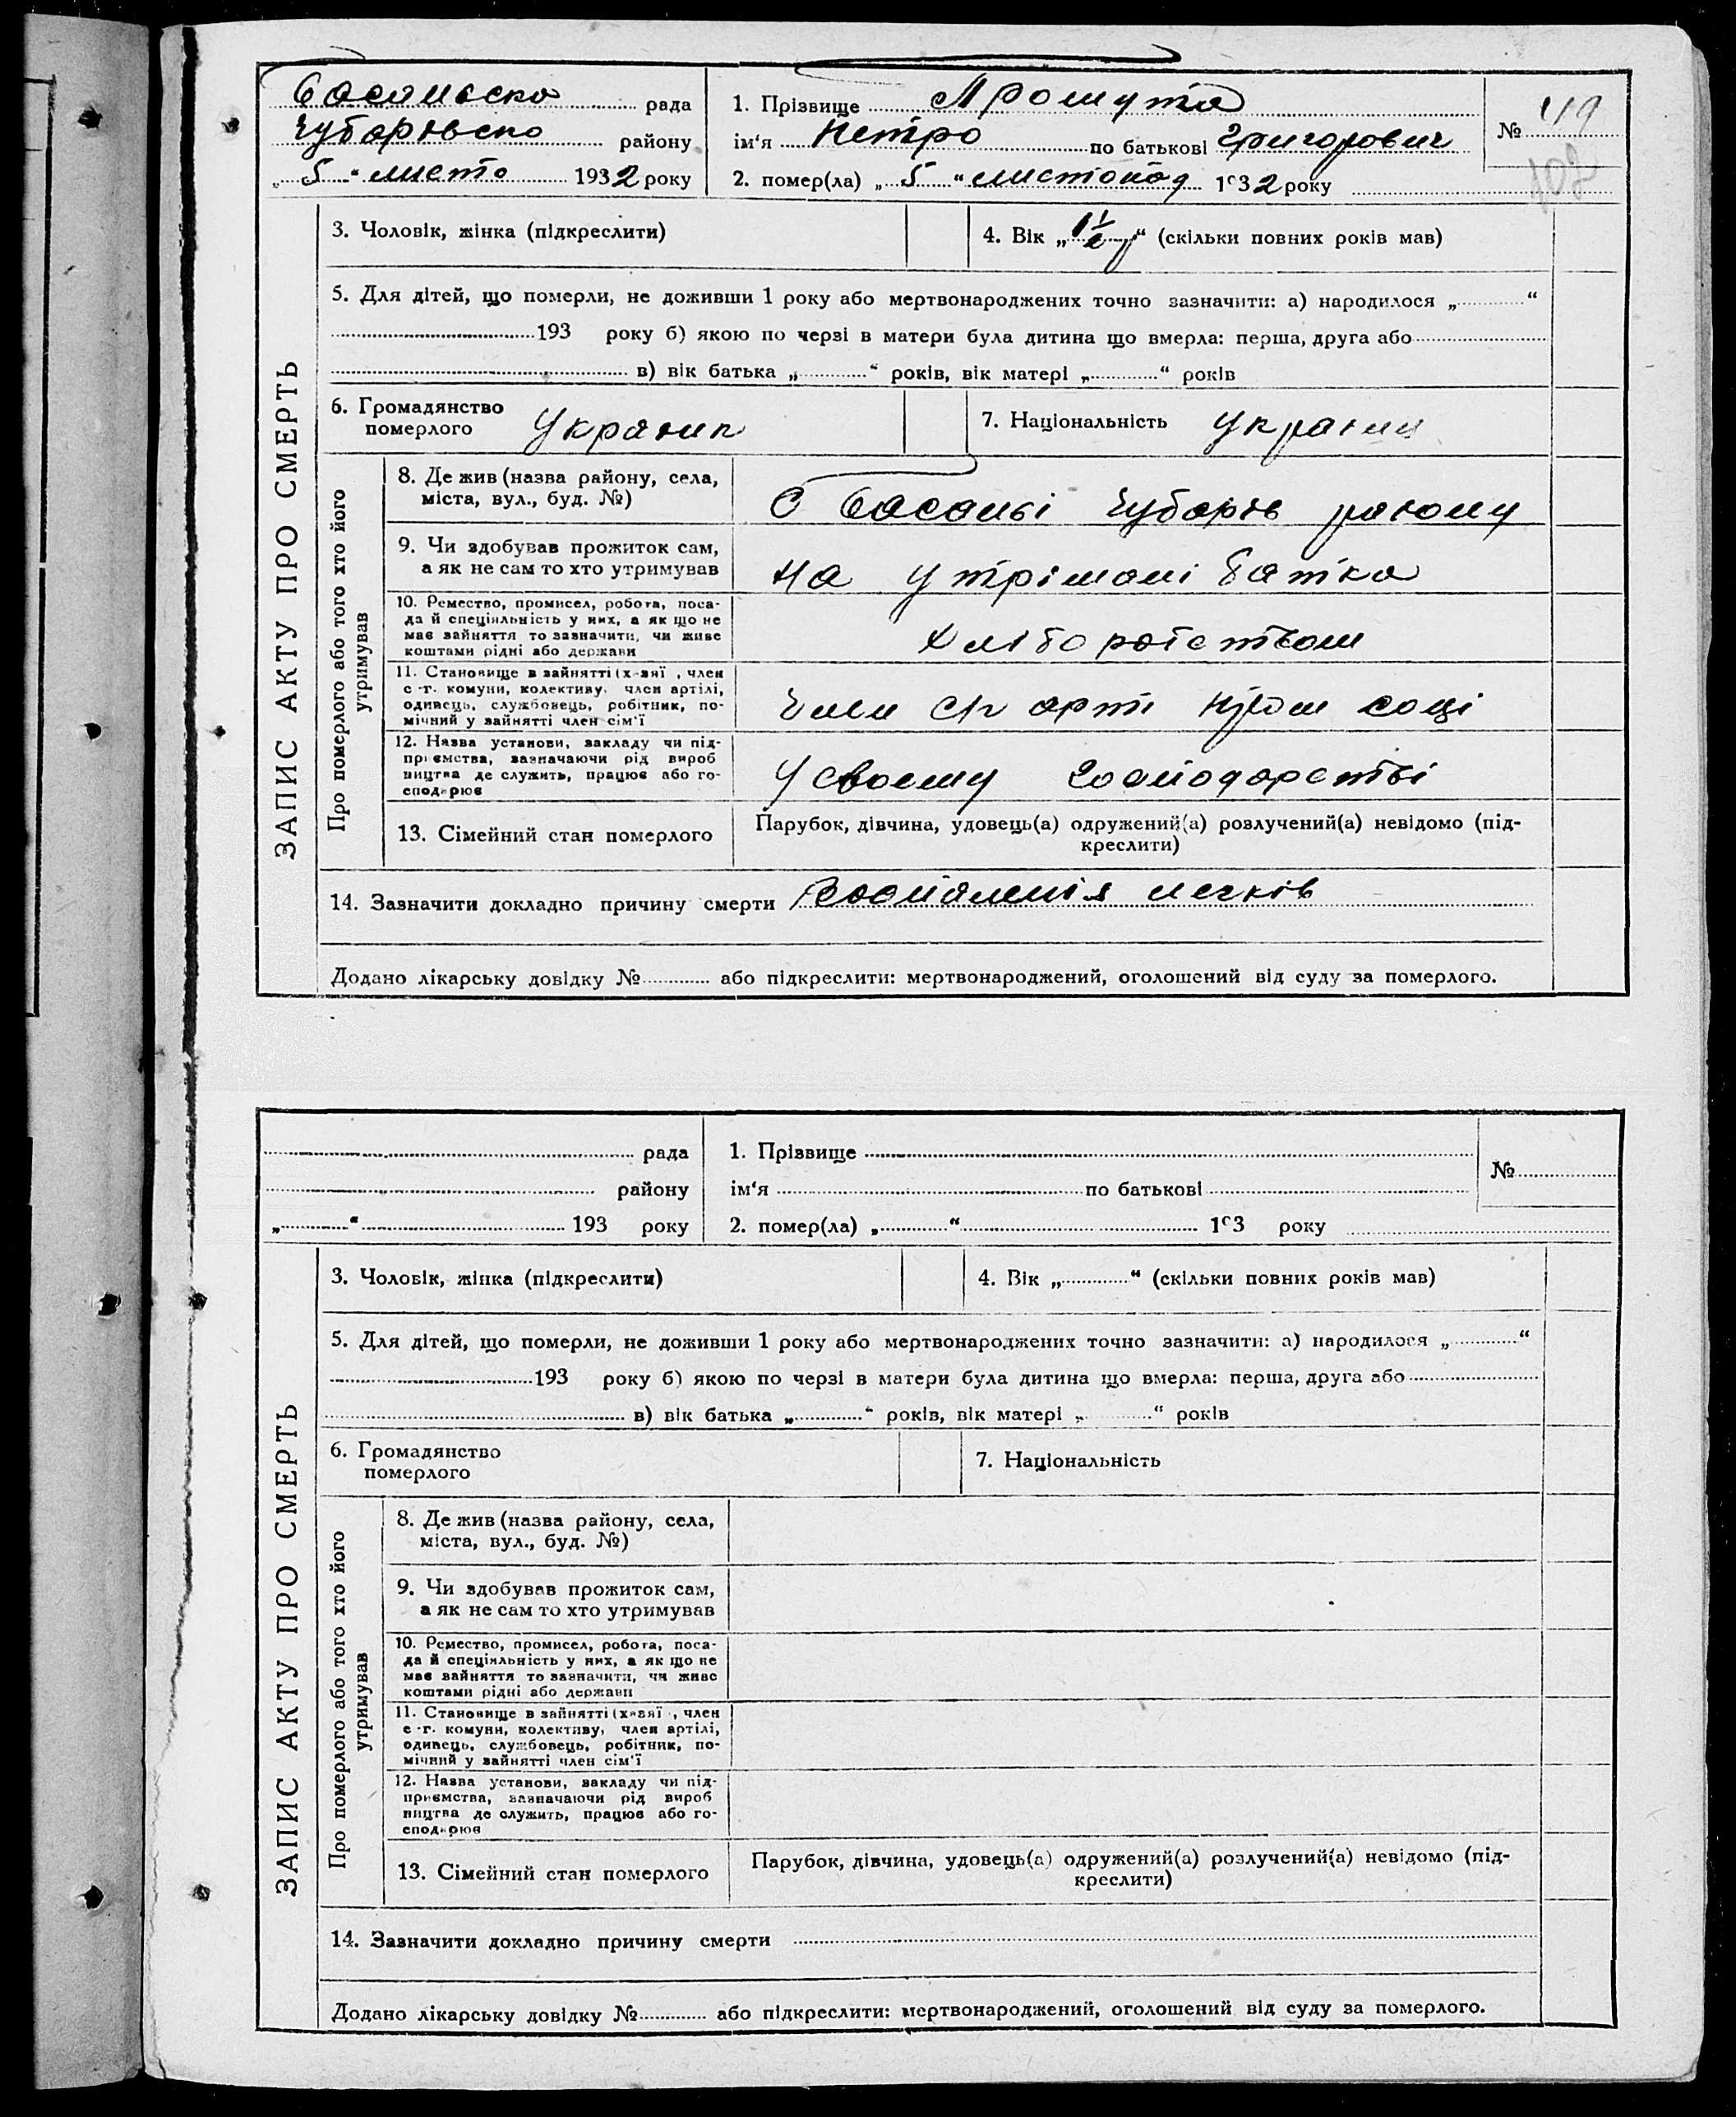 Басанська рада
Чубарівсько району
„5“ листо 1932 року
1. Прізвище
ім'я Петро по батькові Григорович
2. помер(ла) „5“ листопад 1932 року
№ 49
102
ЗАПИС АКТУ ПРО СМЕРТЬ
3. Чоловік, жінка (підкреслити)
4. Вік „1½ р“ (скільки повних років мав)
5. Для дітей, що померли, не доживши 1 року або мертвонароджених точно зазначити: а) народилося „ “
193 року б) якою по черзі в матери була дитина що вмерла: перша, друга або
в) вік батька „ “ років, вік матері „ “ років
6. Громадянство
померлого
7. Національність
Про померлого або того хто його
утримував
8. Де жив (назва району, села,
міста, вул., буд. №)
С Басані Чубарів району
9. Чи здобував прожиток сам,
а як не сам то хто утримував
На утрімані батька
10. Ремество, промисел, робота, поса-
да й спеціяльність у них, а як що не
має зайняття то зазначити, чи живе
коштами рідні або держави
Хліборобством
11. Становище в зайнятті (х-зяї , член
с-г. комуни, колективу, член артілі,
одинець, службовець, робітник, по-
мічний у зайнятті член сім'ї
Член с/г арті
12. Назва установи, закладу чи під-
приємства, зазначаючи рід вироб
ництва де служить, працює або го-
сподарює
У своєму господарстві
13. Сімейний стан померлого
Парубок, дівчина, удовець(а) одружений(а) розлучений(а) невідомо (під-
креслити)
14. Зазначити докладно причину смерти Воспаленія легків
Додано лікарську довідку № або підкреслити: мертвонароджений, оголошений від суду за померлого.
рада
району
„ “ 193 року
1. Прізвище
ім'я по батькові
2. помер(ла) „ “ 193 року
№
ЗАПИС АКТУ ПРО СМЕРТЬ
3. Чоловік, жінка (підкреслити)
4. Вік „ “ (скільки повних років мав)
5. Для дітей, що померли, не доживши 1 року або мертвонароджених точно зазначити: а) народилося „ “
193 року б) якою по черзі в матери була дитина що вмерла: перша, друга або
в) вік батька „ “ років, вік матері „ “ років
6. Громадянство
померлого
7. Національність
Про померлого або того хто його
утримував
8. Де жив (назва району, села,
міста, вул., буд. №)
9. Чи здобував прожиток сам,
а як не сам то хто утримував
10. Ремество, промисел, робота, поса-
да й спеціяльність у них, а як що не
має зайняття то зазначити, чи живе
коштами рідні або держави
11. Становище в зайнятті (х-зяї , член
с-г. комуни, колективу, член артілі,
одинець, службовець, робітник, по-
мічний у зайнятті член сім'ї
12. Назва установи, закладу чи під-
приємства, зазначаючи рід вироб
ництва де служить, працює або го-
сподарює
13. Сімейний стан померлого
Парубок, дівчина, удовець(а) одружений(а) розлучений(а) невідомо (під-
креслити)
14. Зазначити докладно причину смерти
Додано лікарську довідку № або підкреслити: мертвонароджений, оголошений від суду за померлого.